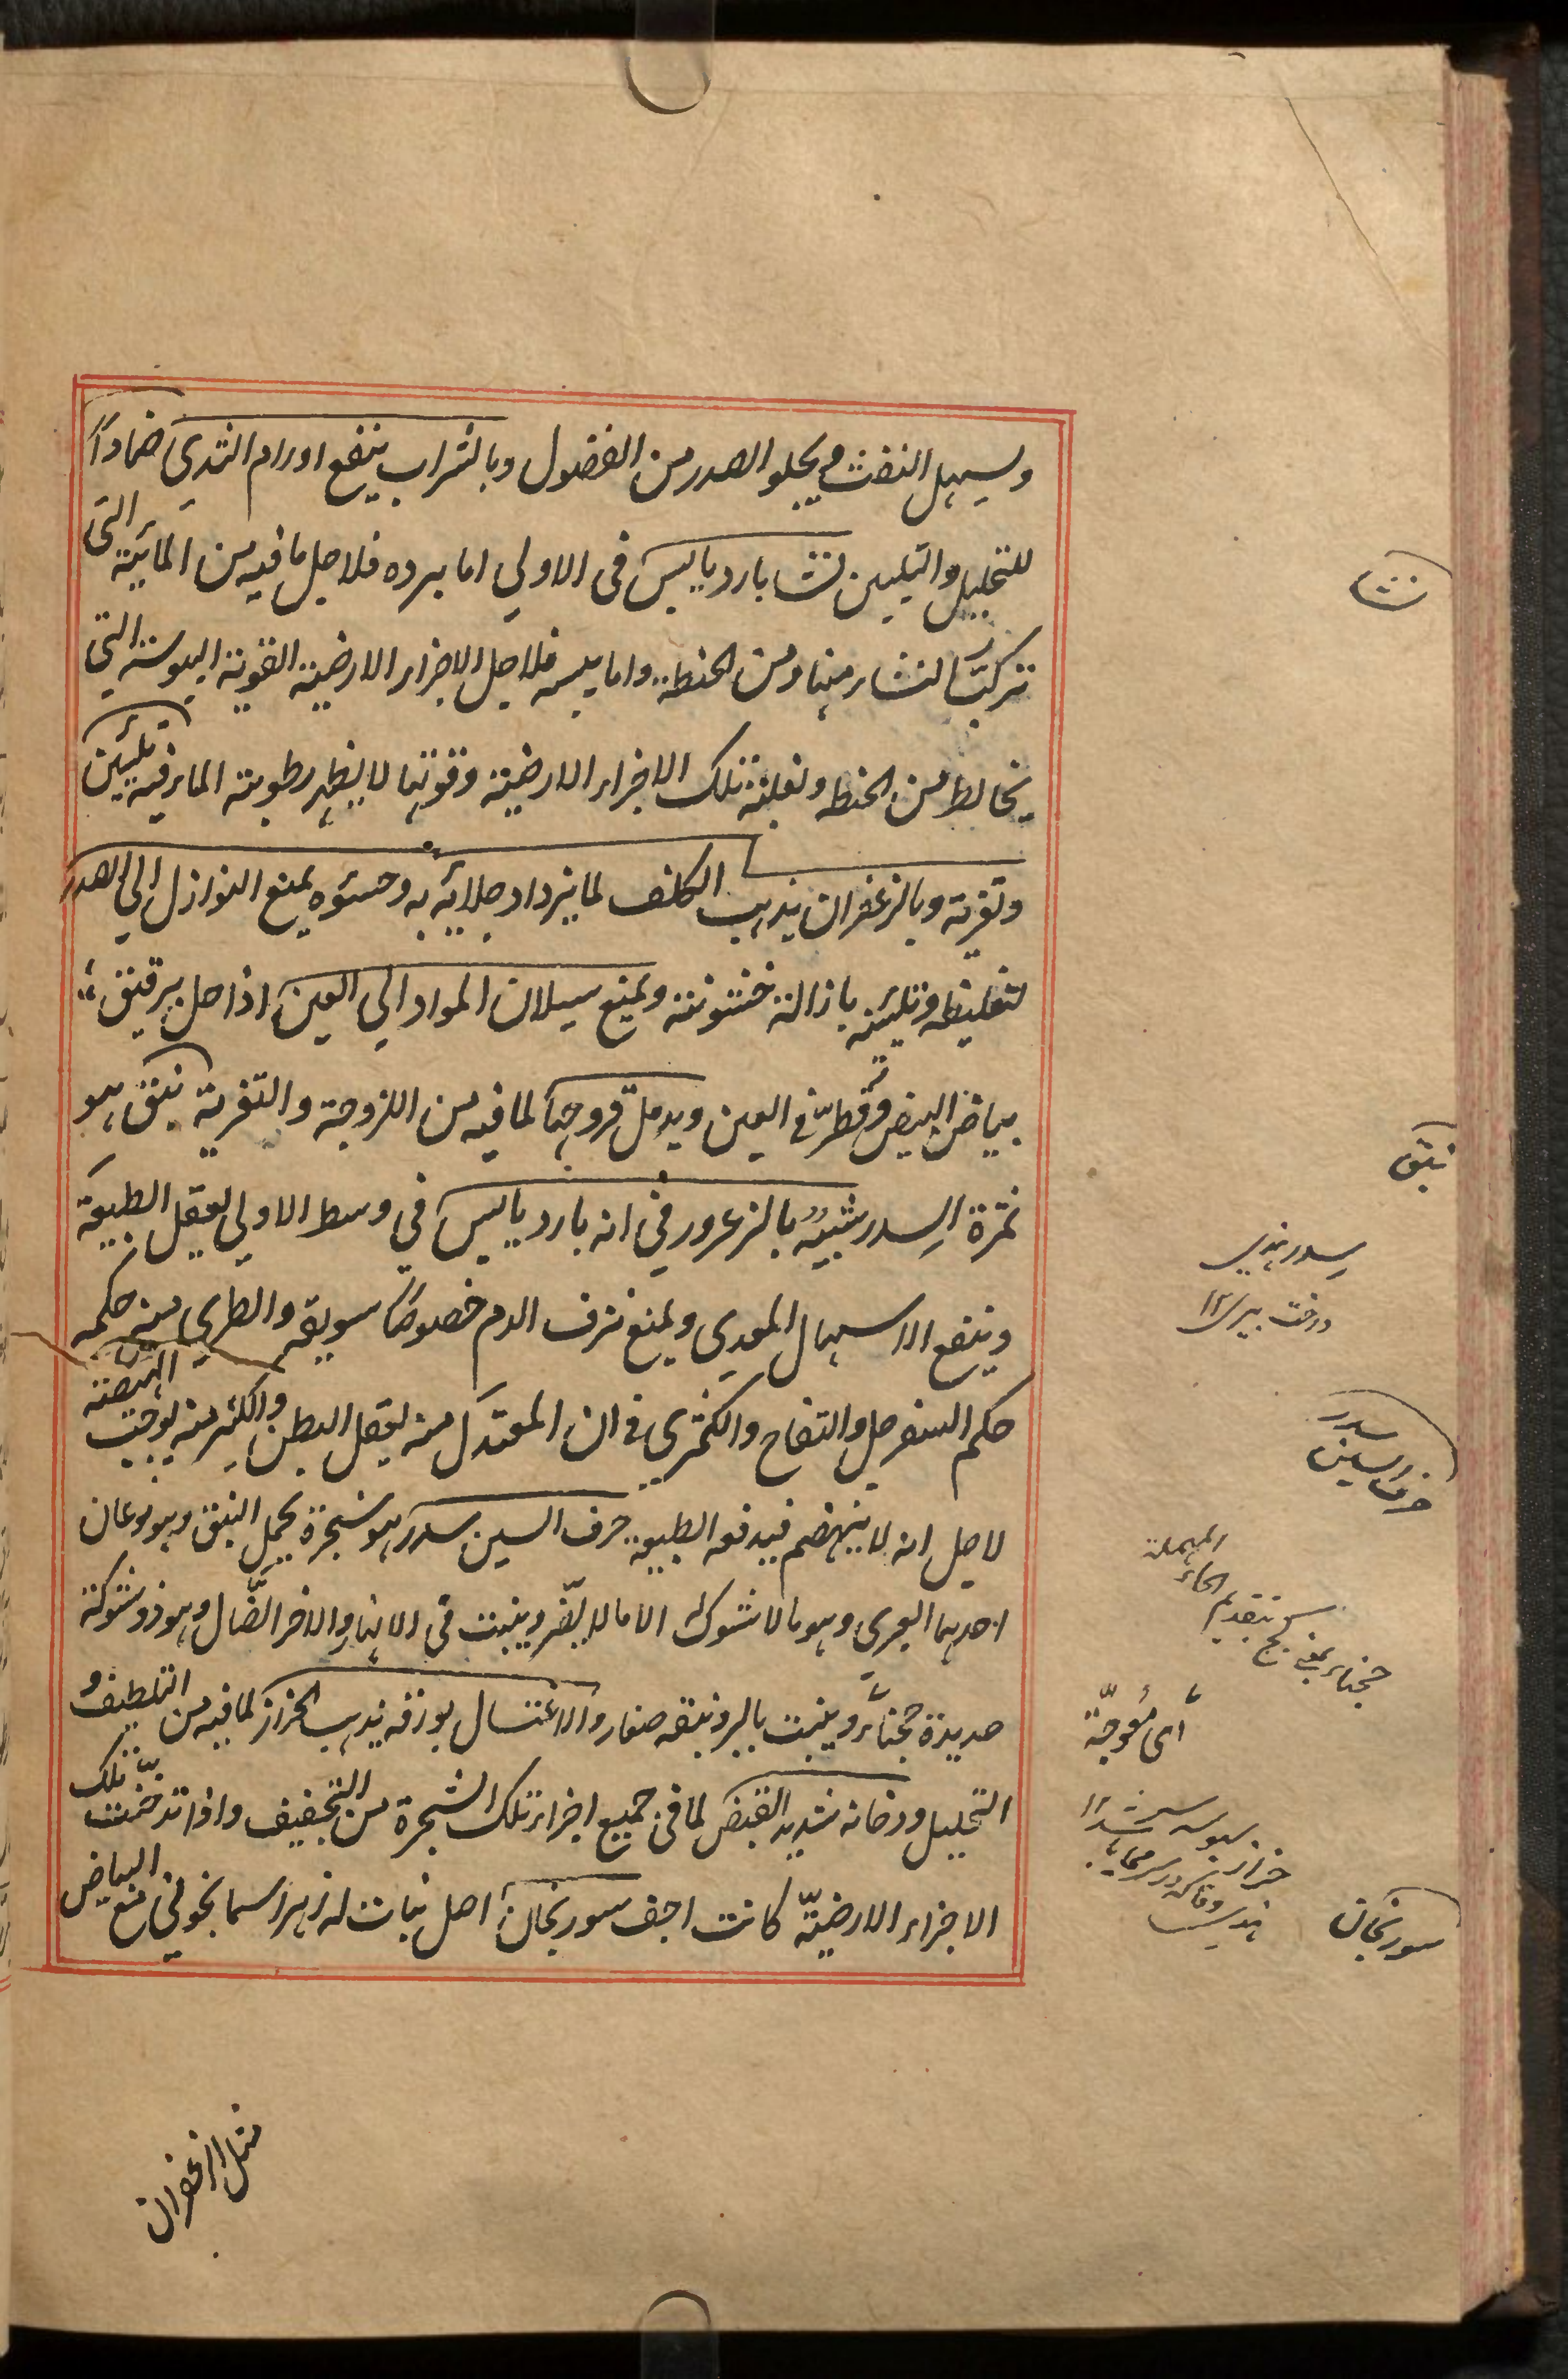 ويسهل النفث ويجلو الصدر من الفضول وبالشراب ينفع اورام الثدي ضماداً
للتحليل والتليين نشا بارد يابس فى الاولي اما برده فلاجل ما فيه من المائية التى
تركب النشاء منها ومن الحنطة واما يبسه فلاجل الاجزاء الارضية القوية اليبوسة التي
يخالط من الحنطه ولغلبة تلك الاجزاء الارضية وقوتها لا يظهر رطوبة الماء فيه تليين
وتغرية وبالزعفران يذهب الكلف لما يزداد جلائه به وحسوه يمنع النوازل الي الصدر
لتغليظه وتليينه بازالة خشونته ويمنع سيلان المواد الي العين اذا حل برقيق
بياض البيض وقطر في العين ويدمل قروحها لما فيه من اللزوجة والتغرية نبق هو
ثمرة السدر شبيه بالزعرور فى انه بارد يابس في وسط الاولي يعقل الطبيعة
وينفع الاسهال المعدي ويمنع نزف الدم خصوصاً سويقه والطري منه حكمه
حكم السفرجل والتفاح والكمثري فى ان المعتدل منه يعقل البطن والكثير منه يوجب الهيضة
لاجل انه لا ينهضم فيدفعه الطبيعة حرف السين سدر هو شجرة يحمل النبق وهو نوعان
احدهما العبري وهو ما لا شوك له الا ما لا يضر وينبت فى الانهار والاخر الضّال وهو ذو شوكة
حديدة حجناء وينبت بالبر ونبقه صغار والاغتسال بورقه يذهب الحزاز لما فيه من التلطيف و
التحليل ودخانه شديد القبض لما فى جميع اجزاء تلك الشجرة من التجفيف واذا تدخنت تلك
الاجزاء الارضيّة كانت اجف سورنجان اصل نبات له زهر اسمانجونى مع البياض
مثل الزعفران
نشا
نبق
سدر بهندي
درخت بير ١٢
سدر
حرف السين
حجناء بمعني كج بتقديم الحاء المهملة
أى مُعوجّة
سورنجان